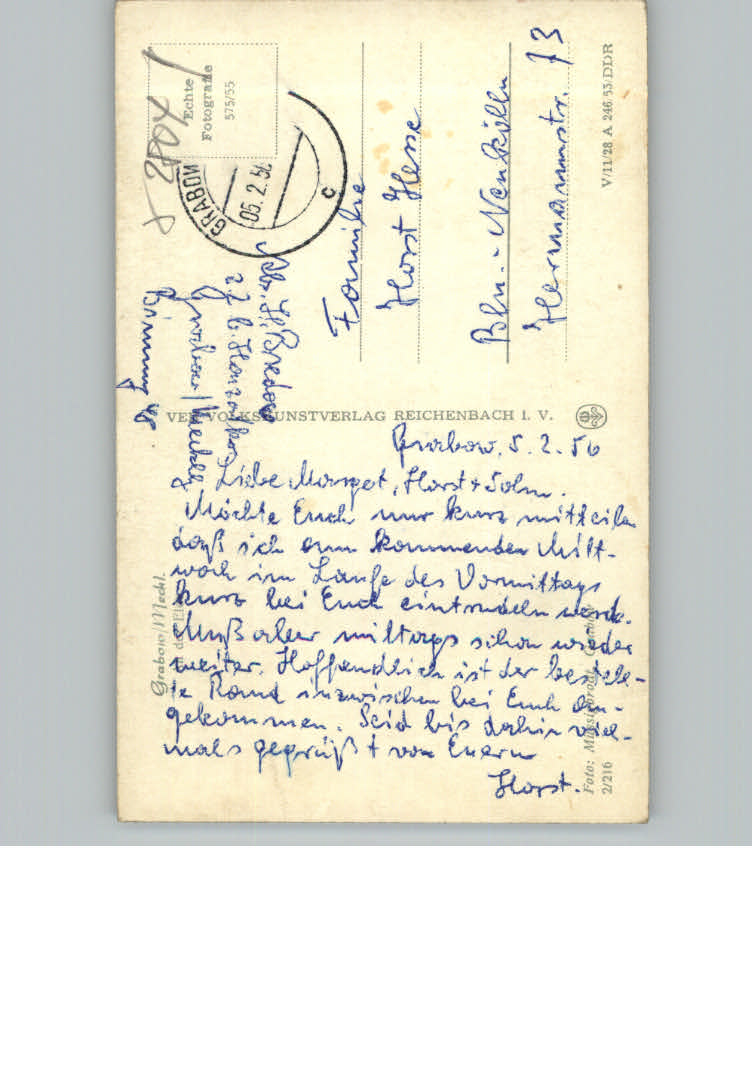 Grabow, 5. 2. 56
Liebe Margot, Horst + Sohn.
Möchte Euch nur kurz mitteilen
daß ich am kommenden Mitt-
woch im Laufe des Vormittags
kurz bei Euch eintrudeln werde.
Muß aber mittags schon wieder
weiter. Hoffendlich ist der bestell-
te inzwischen bei Euch an-
gekommen. Seid bis dahin viel-
mals gegrüßt von Euern
Horst.
Familie
Horst Hesse
Bln.-Neukölln
Hermannstr. 73
Abs. H. Bredow
z. Z. b.
Grabow/Meckl
Echte
Fotografie
575/55
GRABOW
06.2.56
c
V/11/28 A 246/55/DDR
VEB VOLKSKUNSTVERLAG REICHENBACH I. V.
Grabow/Meckl.
An der
Foto:
2/216